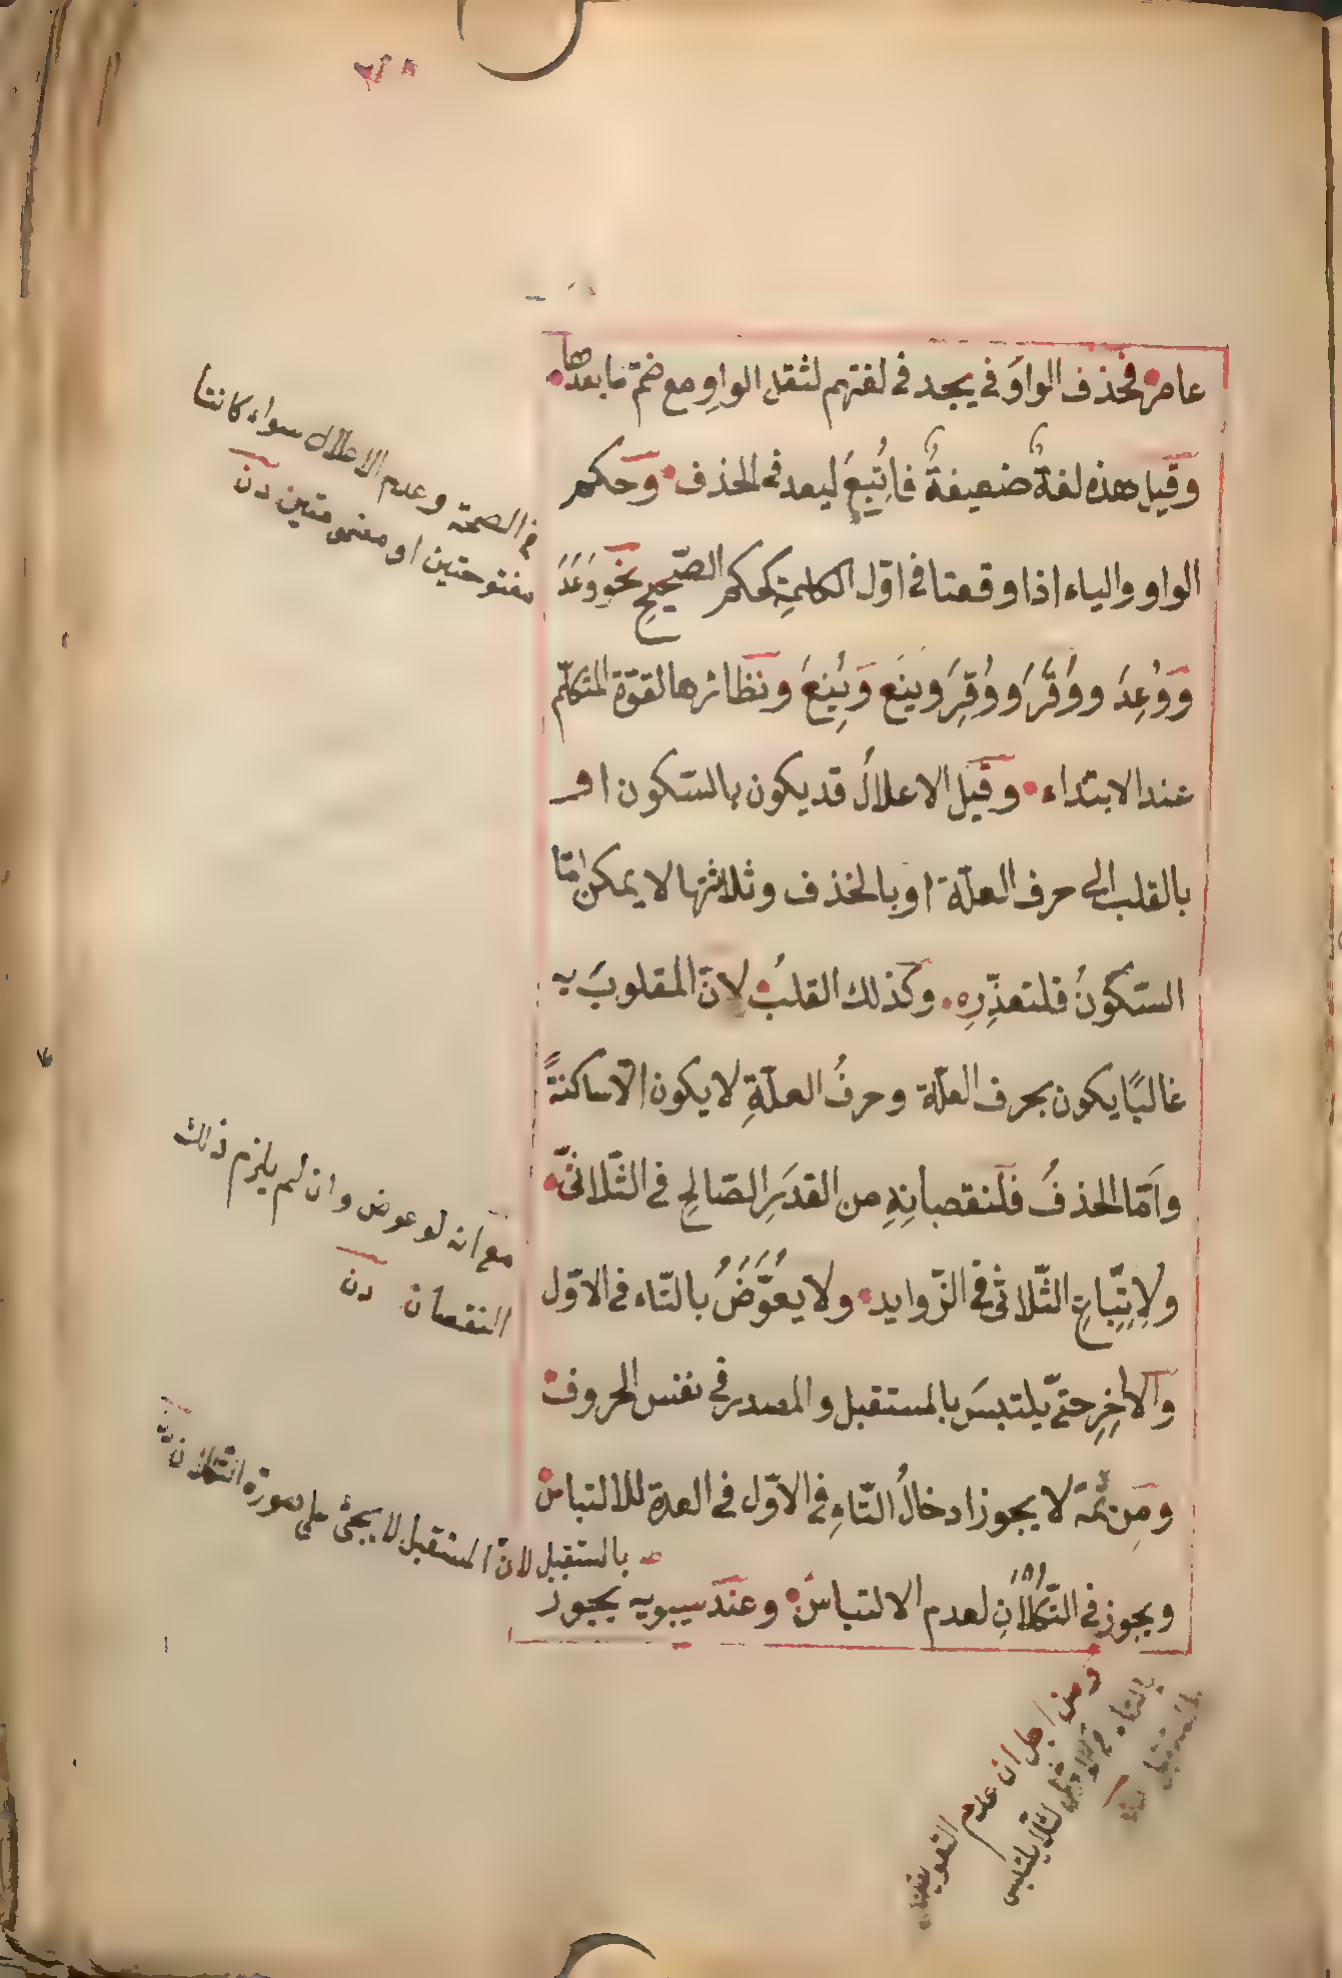 عامر فحذف الواو في يجد في لغتهم لثقل الواوِ مع ضمّ ما بعدها
وَقيل هذه لغةٌ ضعيفةٌ فاُتبِعَ ليعد في الحذف وَحكم
الواو والياء اذا وقعتا في اوّل الكلمةِ كحكم الصّحيحِ نحو وَعَدَ
وَوُعِدَ ووَقَّرَ ووُقِّرَ وينَع وَيُنِعَ ونظائرها لقوّة المتكلّم
عند الابتداء وقيل الاعلالُ قد يكون بالسّكون او
بالقلب الى حرف العلّة او بالحذف وثلاثتها لا يمكن امّا
السّكونُ فلتعذّرِه وكذلك القلبُ لانّ المقلوبَ به
غالبًا يكون بحرف العلّة وحرفُ العلّةِ لا يكون الّا ساكنةً
وامّا الحذفُ فلنقصانِهِ من القدَرِ الصّالحِ في الثّلاثيّ
ولاِتِّباعِ الثّلاثي في الزّوايد ولا يعُوَّضَُ بالتّاء في الاوّل
والاخِرِ حتّى يلتبسَ بالمستقبل والمصدر في نفس الحروف
ومِن ثمّة لا يجوز ادخالُ التّاءِ في الاوّل في العدة للالتباس
ويجوز في التّكلانِ لعدم الالتباس وعند سيبويه يجوز
في الصحة وعدم الاعلال سواء كانتا
مفتوحتين او مضمومتين
مع انه لو عوض وان لم يلزم ذلك
النقصان
بالمستقبل لانّ المستقبل لا يجئ على صورة التكلان
ومن اجل ان عدم التعويض
بالتاء في الاول لئلا يلتبس
بالمستقبل